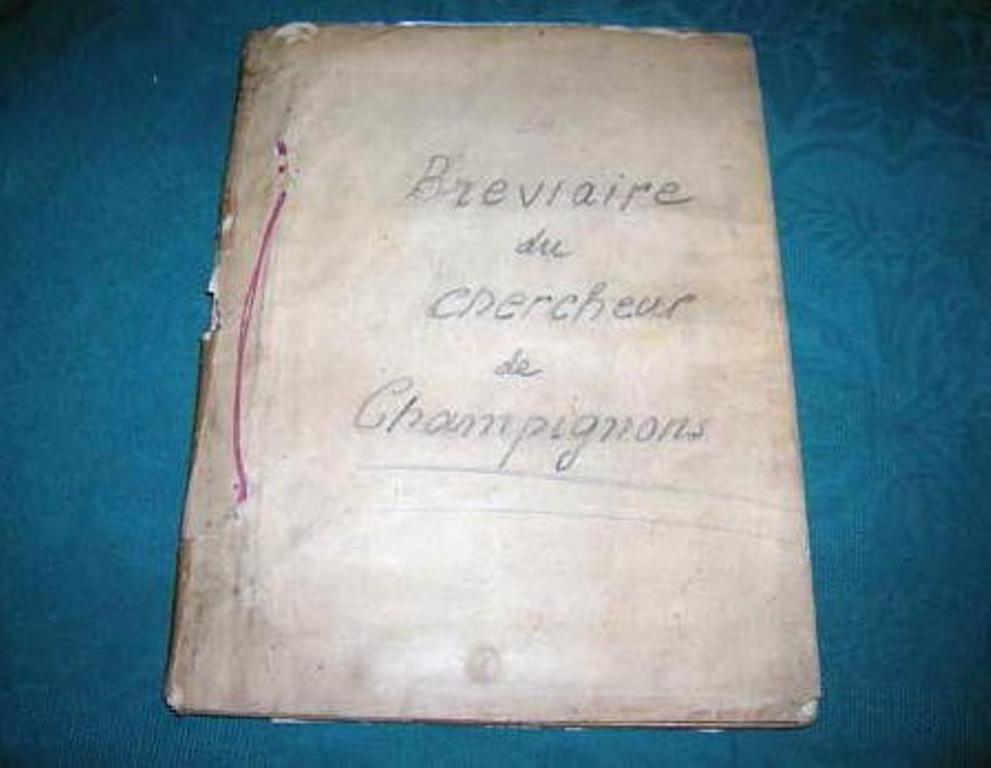 Breviaire
du
chercheur
de
Champignons